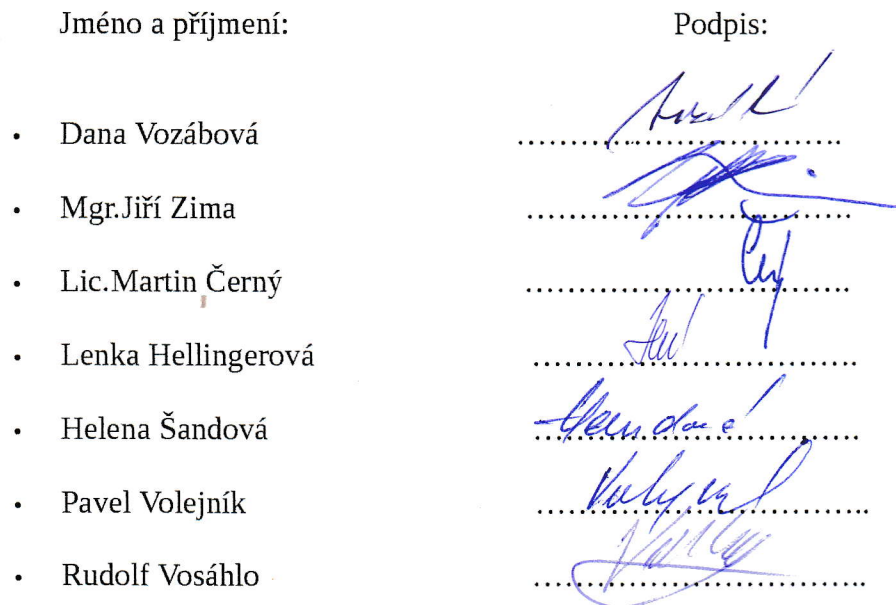 Jméno a příjmení: Podpis:
• Dana Vozábová ........................................
• Mgr.Jiří Zima ........................................
• Lic.Martin Černý ........................................
• Lenka Hellingerová ........................................
• Helena Šandová ........................................
• Pavel Volejník ........................................
• Rudolf Vosáhlo ........................................